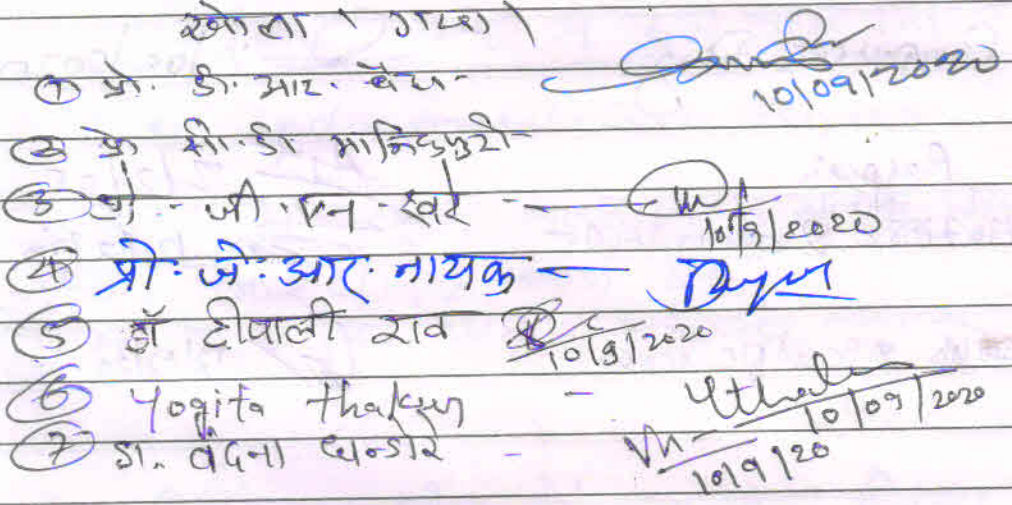 ① प्रो. डी. आर. वैद्य - 10/09/2020
② प्रो सी.डी मानिकपुरी -
③ प्रो - जी. एन - खरे - 10/9/2020
④ प्रो. जे. आर. नायक -
⑤ डॉ दीपाली राव 10/9/2020
⑥ Yogita Thakur - 10/09/2020
⑦ डा. वंदना - 10/9/20